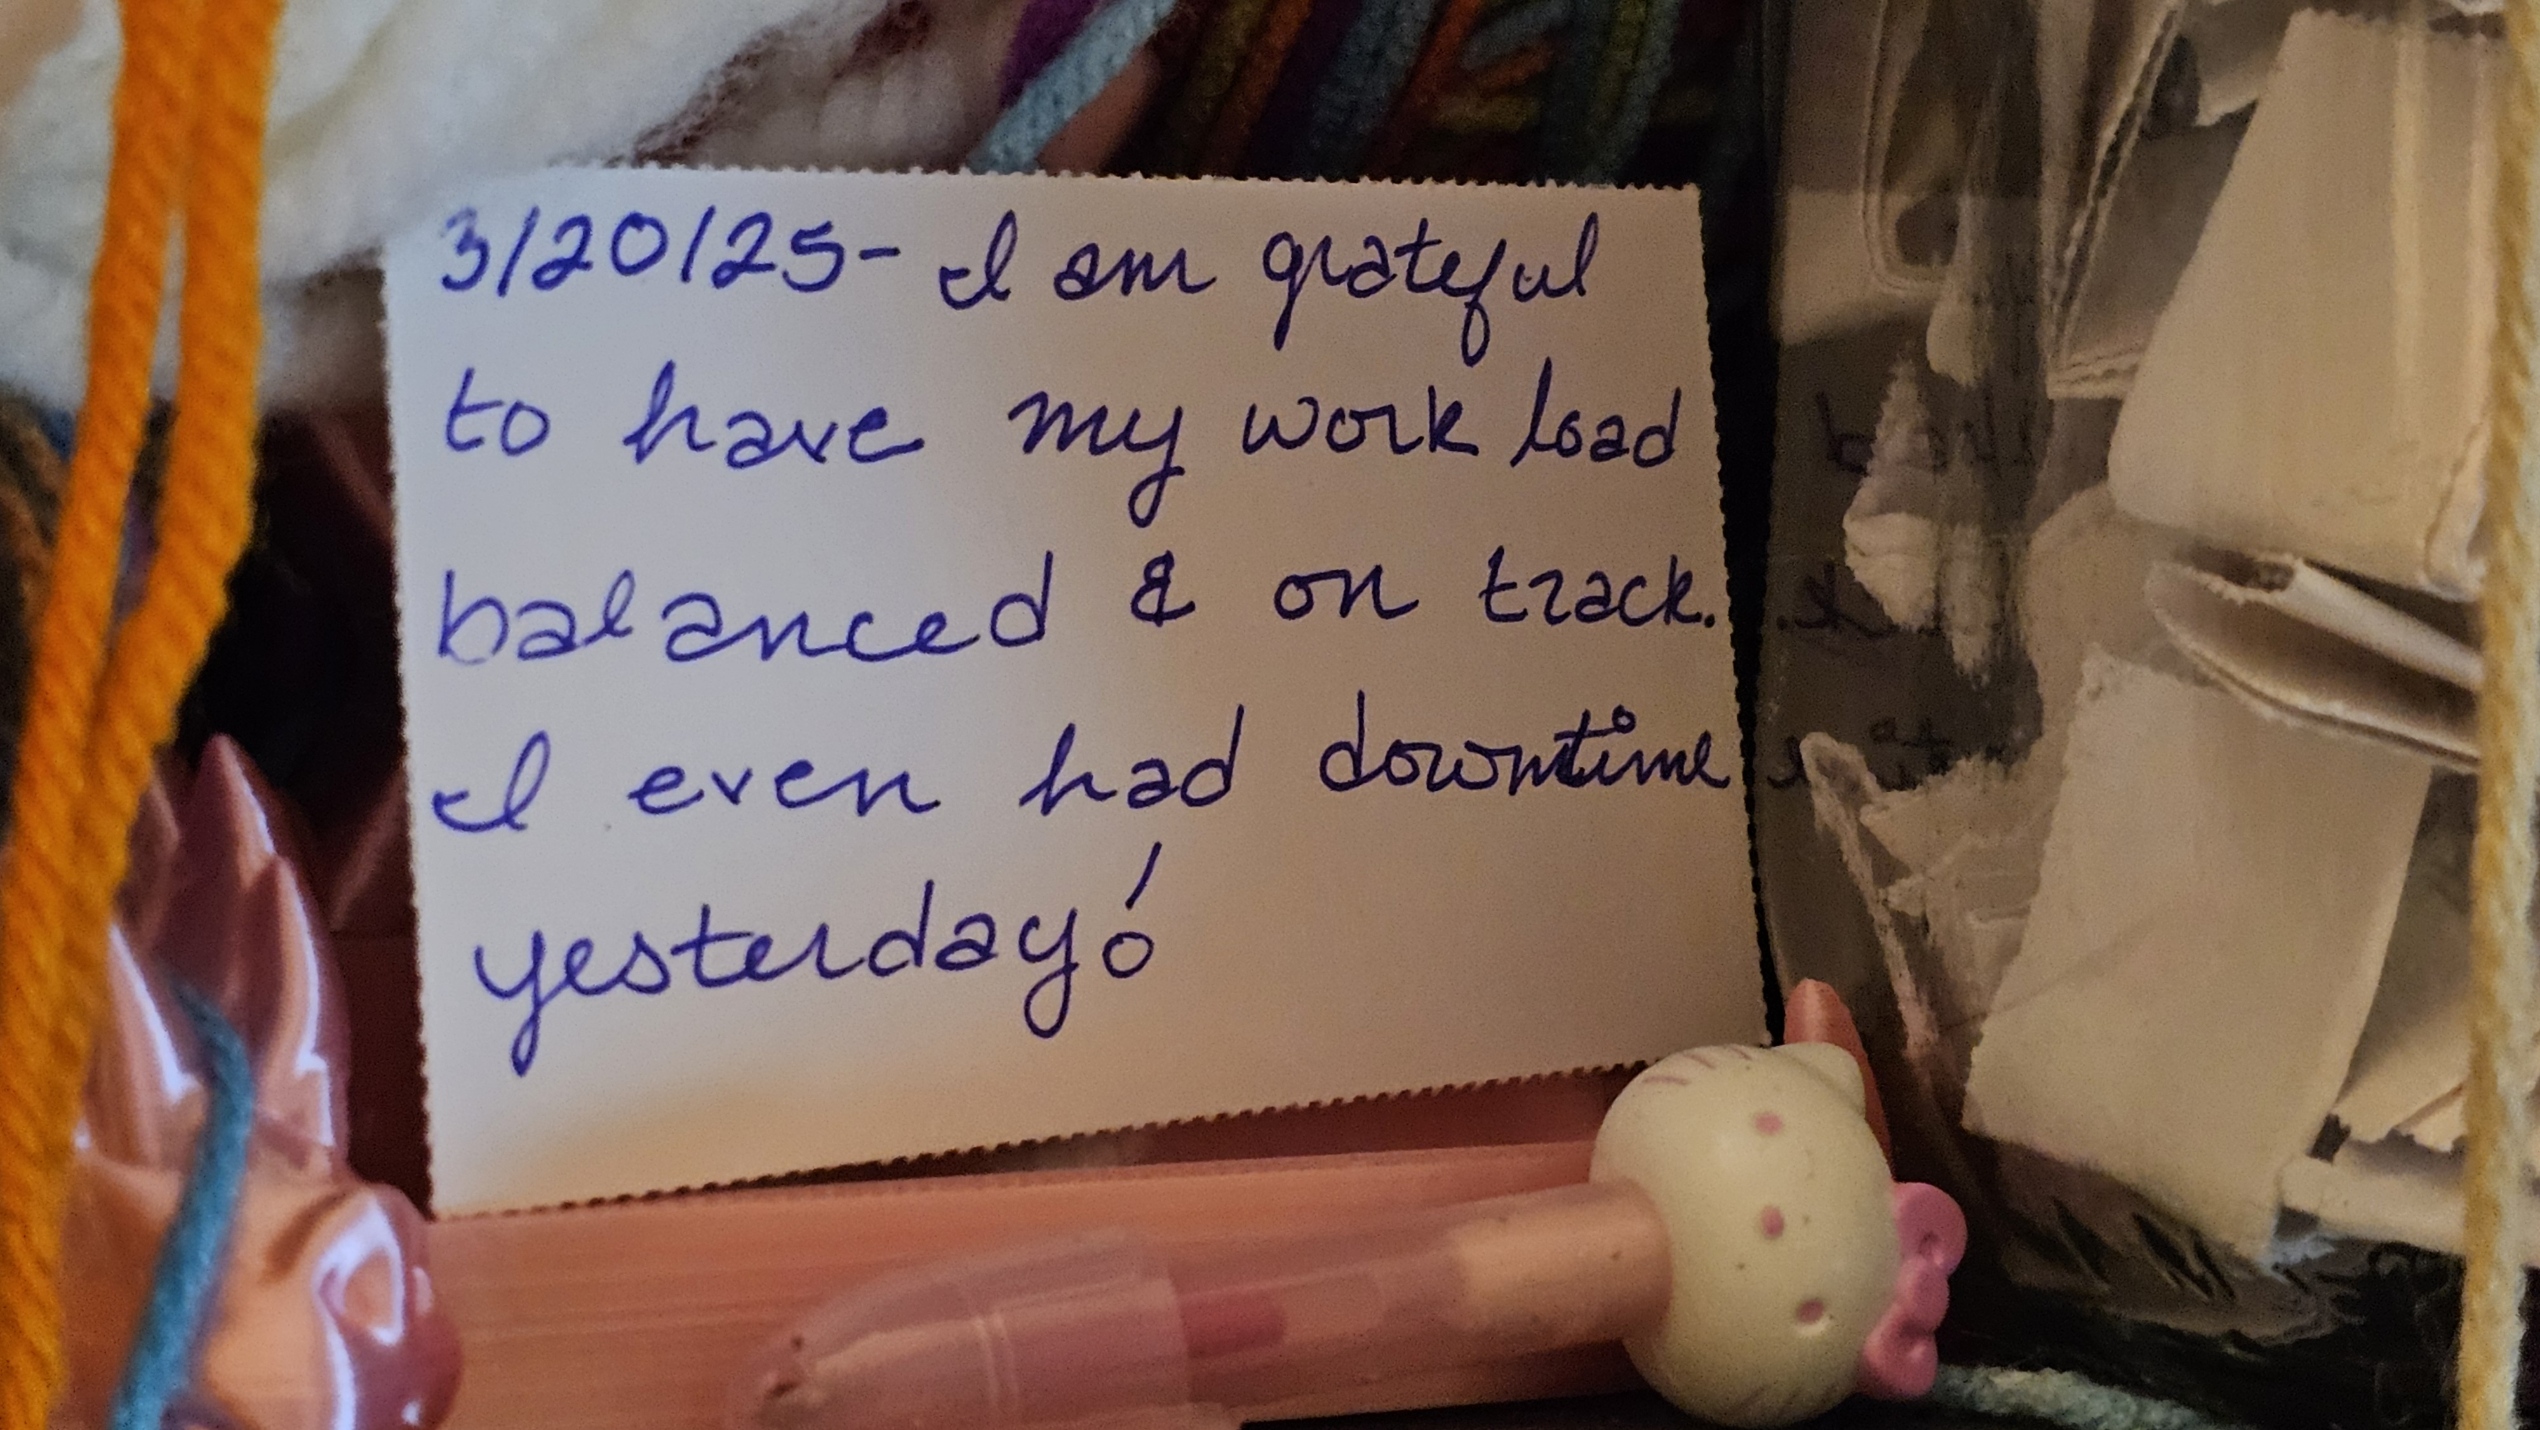 3/20/25- I am grateful
to have my work load
balanced & on track.
I even had downtime
yesterday!